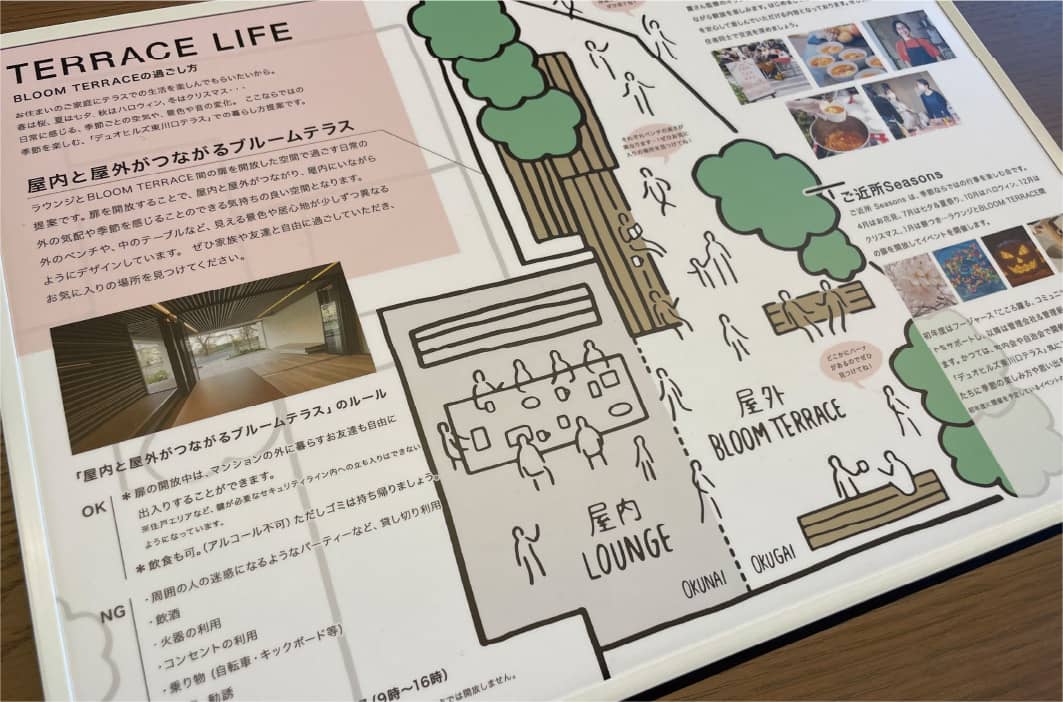 TERRACE LIFE
BLOOM TERRACEの過ごし方
お住まいのご家庭にテラスでの生活を楽しんでもらいたいから。
春は桜、夏は七夕、秋はハロウィン、冬はクリスマス・・・
日常に感じる、季節ごとの空気や、景色や音の変化。ここならではの
季節を楽しむ、「デュオヒルズ東川口テラス」での暮らし方提案です。
屋内と屋外がつながるブルームテラス
ラウンジとBLOOM TERRACE間の扉を開放した空間で過ごす日常の
提案です。扉を開放することで、屋内と屋外がつながり、屋内にいながら
外の気配や季節を感じることのできる気持ちの良い空間となります。
外のベンチや、中のテーブルなど、見える景色や居心地が少しずつ異なる
ようにデザインしています。 ぜひ家族や友達と自由に過ごしていただき、
お気に入りの場所を見つけてください。
「屋内と屋外がつながるブルームテラス」のルール
OK
＊扉の開放中は、マンションの外に暮らすお友達も自由に
出入りすることができます。
※住戸エリアなど、鍵が必要なセキュリティライン内への立ち入りはできない
ようになっています。
＊飲食も可。(アルコール不可) ただしゴミは持ち帰りましょう。
NG
・周囲の人の迷惑になるようなパーティーなど、貸し切り利用
・飲酒
・火器の利用
・コンセントの利用
・乗り物 (自転車・キックボード等)
勧誘
(9時〜16時)
では開放しません。
屋内
LOUNGE
OKUNAI
OKUGAI
屋外
BLOOM TERRACE
それぞれベンチの高さが
入りの場所を見つけてね！
どこかにハーブ
があるのでぜひ
見つけてね！
ながら
を安心して楽しんでいただける内容となっております。
住者同士で交流を深めましょう。
ご近所Seasons
ご近所 Seasons は、季節ならではの行事を楽しむ会です。
4月はお花見、7月は七夕＆夏祭り、10月はハロウィン、12月は
クリスマス、1月は餅つき…ラウンジとBLOOM TERRACE間
の扉を開放してイベントを開催します。
初年度はフージャース「こころ踊る、コミュ
たちサポートし、以降は管理会社＆管理
ます。かつては、町内会や自治会で
「デュオヒルズ東川口テラス」
たちに季節の楽しみ方や思い出